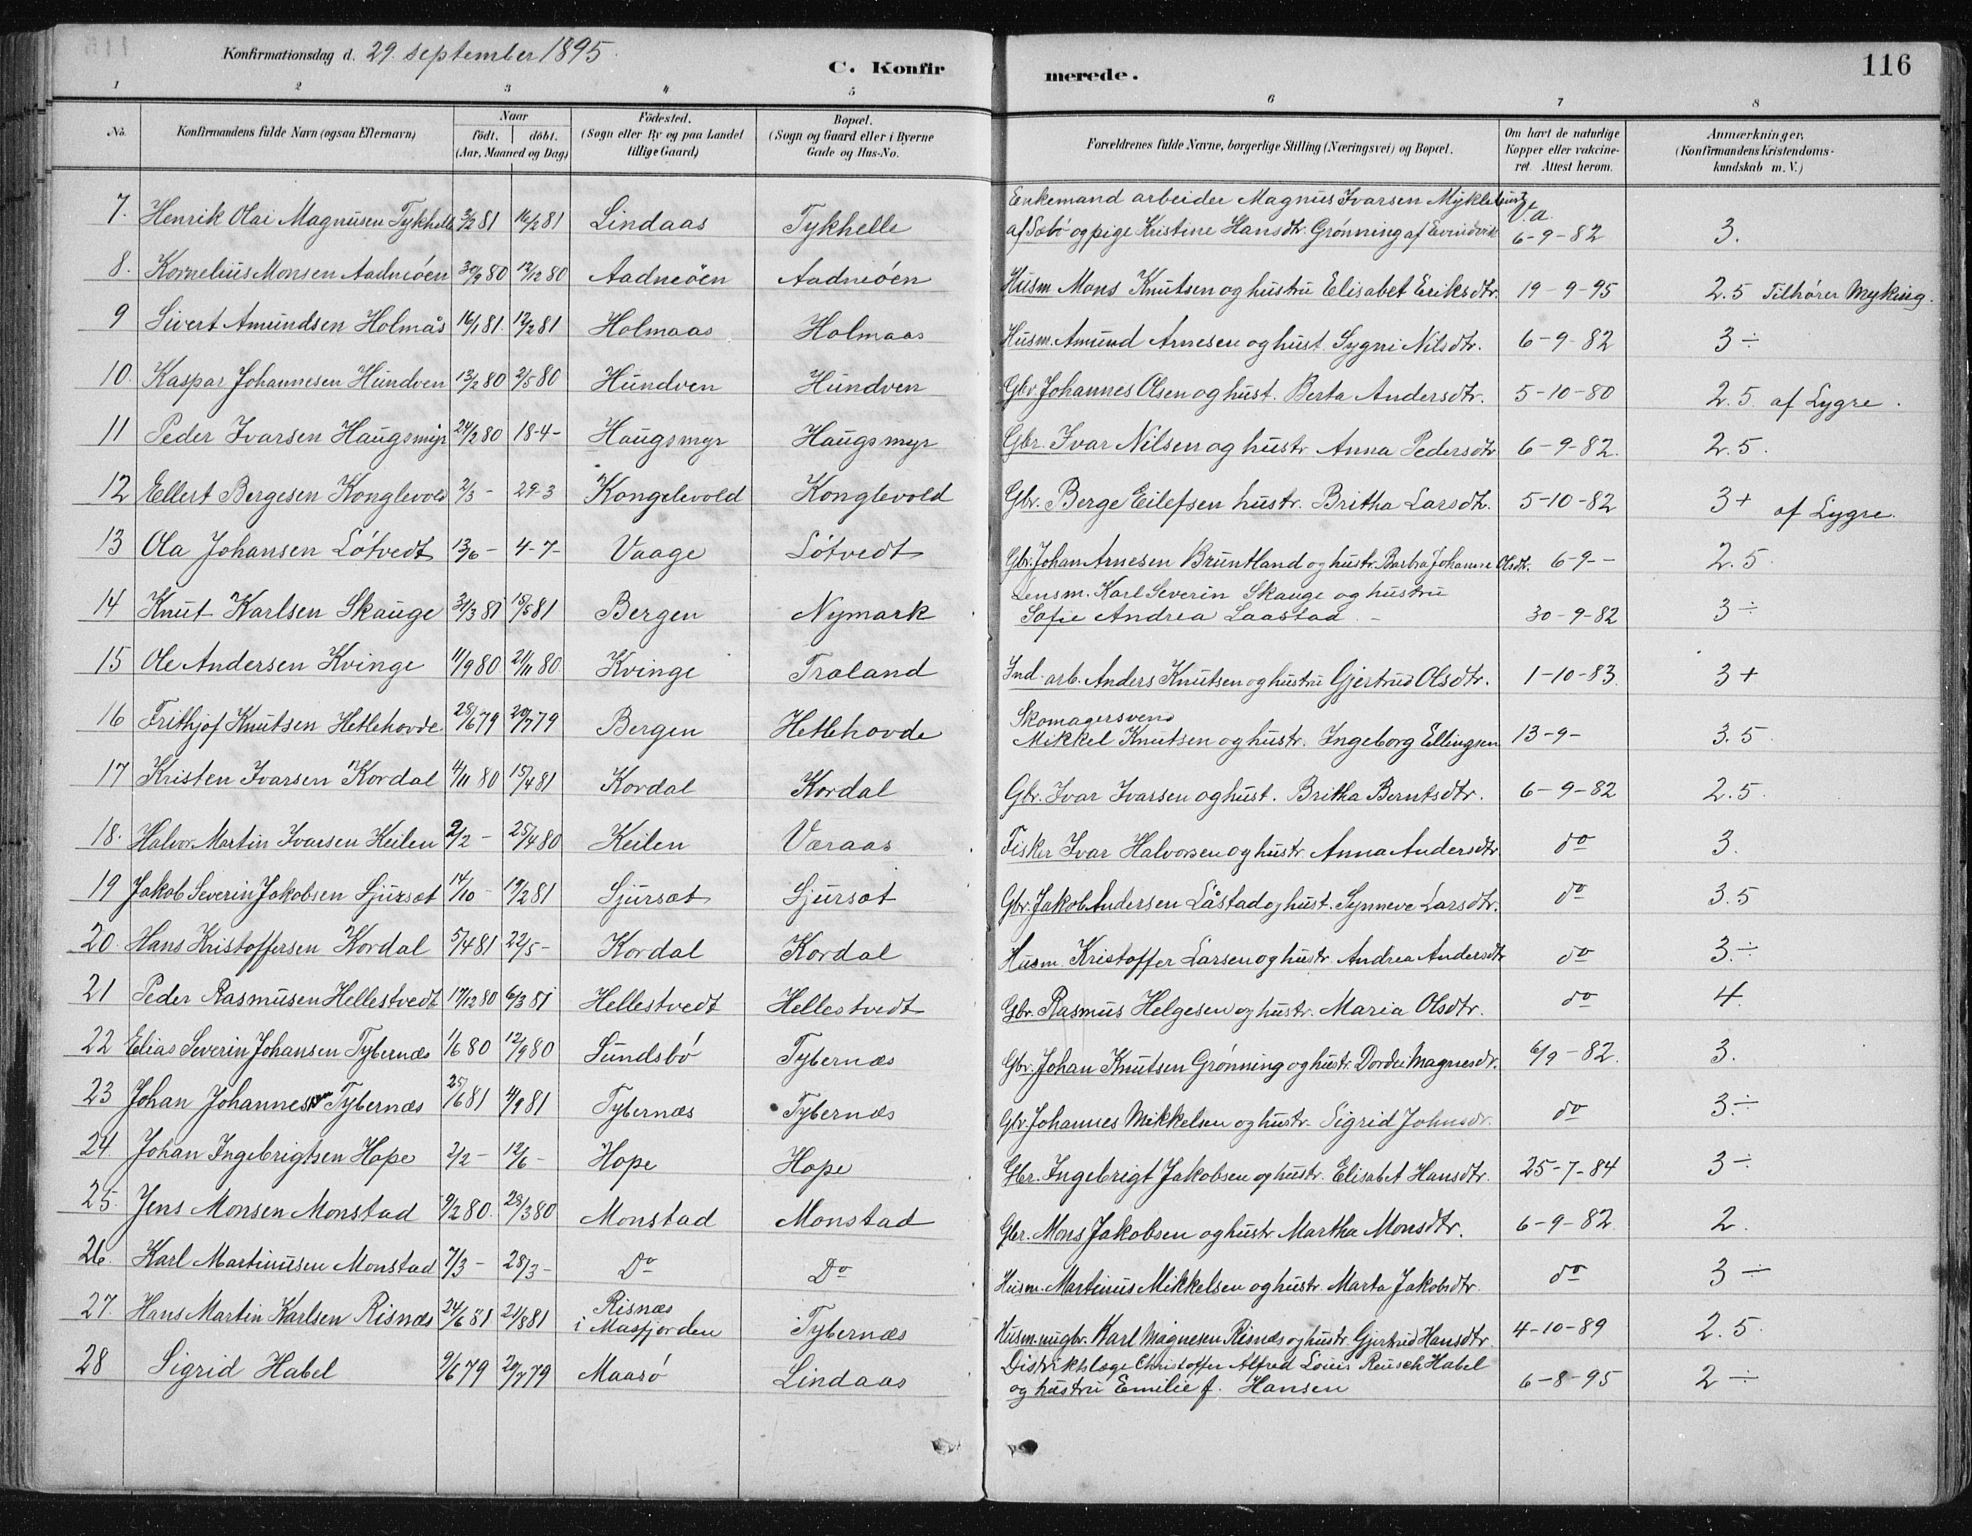 Konfirmationsdag d. 29. september 1895.
C. Konfirmerede.
116
1 2 3 4 5 6 7 8
No. Konfirmandens fulde Navn (ogsaa Efternavn) Naar født. døbt. (Aar, Maaned og Dag) Fødested. (Sogn eller By og paa Landet tillige Gaard) Bopæl. (Sogn og Gaard eller i Byerne Gade og Hus-No. Forældrenes fulde Navne, borgerlige Stilling (Næringsvei) og Bopæl. Om havt de naturlige Kopper eller vakcineret. Attest herom. Anmærkninger. (Konfirmandens Kristendomskundskab m. V.)
7. Henrik Olai Magnusen Tykhelle 3/2 81 16/2 81 Lindaas Tykhelle Enkemand arbeider Magnus Ivarsen Myklebust af Sæbø og pige Kristine Hansdtr. Grønning af Evindvik V.a. 6-9-82 3.
8. Kornelius Monsen Aadneöen 30/9 80 12/12 80 Aadneöen Aadneöen Husm. Mons Knutsen og hustru Elisabet Eriksdtr. 19-9-95 2.5 Tilhører Myking.
9 Sivert Amundsen Holmås 16/1 81. 12/2 81 Holmaas Holmaas Husm. Amund Arnesen og hust. Sygni Nilsdtr. 6-9-82 3÷
10. Kaspar Johannesen Hundven 13/2 80 2/5 80 Hundven Hundven Gbr. Johannes Olsen og hust. Berta Andersdtr. 5-10-80 2.5 af Lygre.
11 Peder Ivarsen Haugsmyr 24/2 80 18-4- Haugsmyr Haugsmyr Gbr. Ivar Nilsen og hustr. Anna Pedersdtr 6-9-82. 2.5.
12 Ellert Bergesen Konglevold 2/3 - 29-3 Kongelevold Konglevold Gbr. Berge Eilefsen hustr. Britha Larsdtr. 5-10-82 3+ af Lygre.
13 Ola Johansen Løtvedt 13/6 - 4-7- Vaage Løtvedt Gbr. Johan Arnesen Bruntland og hustr. Barbra Johanne Olsdtr. 6-9-- 2.5
14 Knut Karlsen Skauge 31/3 81 15/5 81 Bergen Nymark Lensm. Karl Severin Skauge og hustru Sofie Andrea Laastad - 30-9-82 3÷
15 Ole Andersen Kvinge 11/9 80 21/11 80 Kvinge Traland Ind. arb. Anders Knutsen og hustru Gjertrud Olsdtr. 1-10-83. 3+
16 Frithjof Knutsen Hetlehovde 28/6 79 20/7 79 Bergen Hetlehovde Skomagersvend Mikkel Knutsen og hustr. Ingeborg Ellingsen 13-9- 3.5
17 Kristen Ivarsen Kordal 4/11 80 15/4 81 Kordal Kordal Gbr. Ivar Ivarsen og hust. Britha Berntsdtr. 6-9-82 2.5.
18. Halvor Martin Ivarsen Keilen 2/2 - 25/4 80 Keilen Væraas Fisker Ivar Halvorsen og hustr. Anna Andersdtr do 3.
19 Jakob Severin Jakobsen Sjursæt 14/10 - 19/2 81 Sjursæt Sjursæt Gbr. Jakob Andersen Låstad og hust. Synneve Larsdtr. do 3.5
20. Hans Kristoffersen Kordal 5/4 81 22/5 - Kordal Kordal Husm. Kristoffer Larsen og hustr. Andrea Andersdtr do 3÷
21 Peder Rasmusen Hellestvedt 17/12 80 6/3 81 Hellestvedt Hellestvedt Gbr. Rasmus Helgesen og hustr. Maria Olsdtr. do 4.
22 Elias Severin Johansen Tybernæs 1/6 80 12/9 80 Sundsbø Tybernæs Gbr. Johan Knutsen Grønning og hustr. Dordei Magnesdtr. 6/9-82. 3.
23 Johan Johannessen Tybernæs 25/6 81 4/9 81 Tybernæs Tybernæs Gbr. Johannes Mikkelsen og hustr. Sigrid Johnsdr. do 3÷
24 Johan Ingebrigtsen Hope 2/2 - 12/6 - Hope Hope Gbr. Ingebrigt Jakobsen og hustr. Elisabet Hansdtr. 25-7-84 3÷
25. Jens Monsen Monstad 9/2 80. 28/3 80 Monstad Monstad Gbr. Mons Jakobsen og hustr. Martha Monsdtr. 6-9-82. 2.
26. Karl Martinusen Monstad 7/3 - 28/3 - Do Do Husm. Martinus Mikkelsen og hustr. Marta Jakobsdtr. do 3÷
27. Hans Martin Karlsen Risnæs 24/6 81 21/8 81 Risnæs i Masfjorden Tybernæs Husm. nu gbr. Karl Magnesen Risnæs og hustr. Gjertrud Hansdtr. 4-10-89 2.5.
28 Sigrid Habel 9/6 79 20/7 79 Maasø Lindaas Distriktslæge Christoffer Alfred Louis Reusch Habel og hustru Emilie f. Hansen 6-8-95 2÷